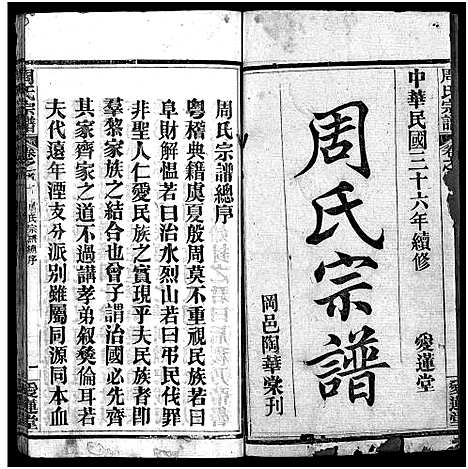 中華民國三十六年續修
周氏宗譜
愛蓮堂
岡邑陶華棠刊
周氏宗譜總序
粵稽典籍虞夏殷周莫不重視民族若曰
阜財解慍若曰治水烈山若曰弔民伐罪
非聖人仁愛民族之實現乎夫民族者即
羣黎家族之結合也曾子謂治國必先齊
其家齊家之道不過講孝弟敘彝倫耳若
夫代遠年湮支分派別雖屬同源同本血
周氏宗譜
卷之
周氏宗譜總序
一
愛蓮堂
周氏宗譜
卷之
愛蓮堂